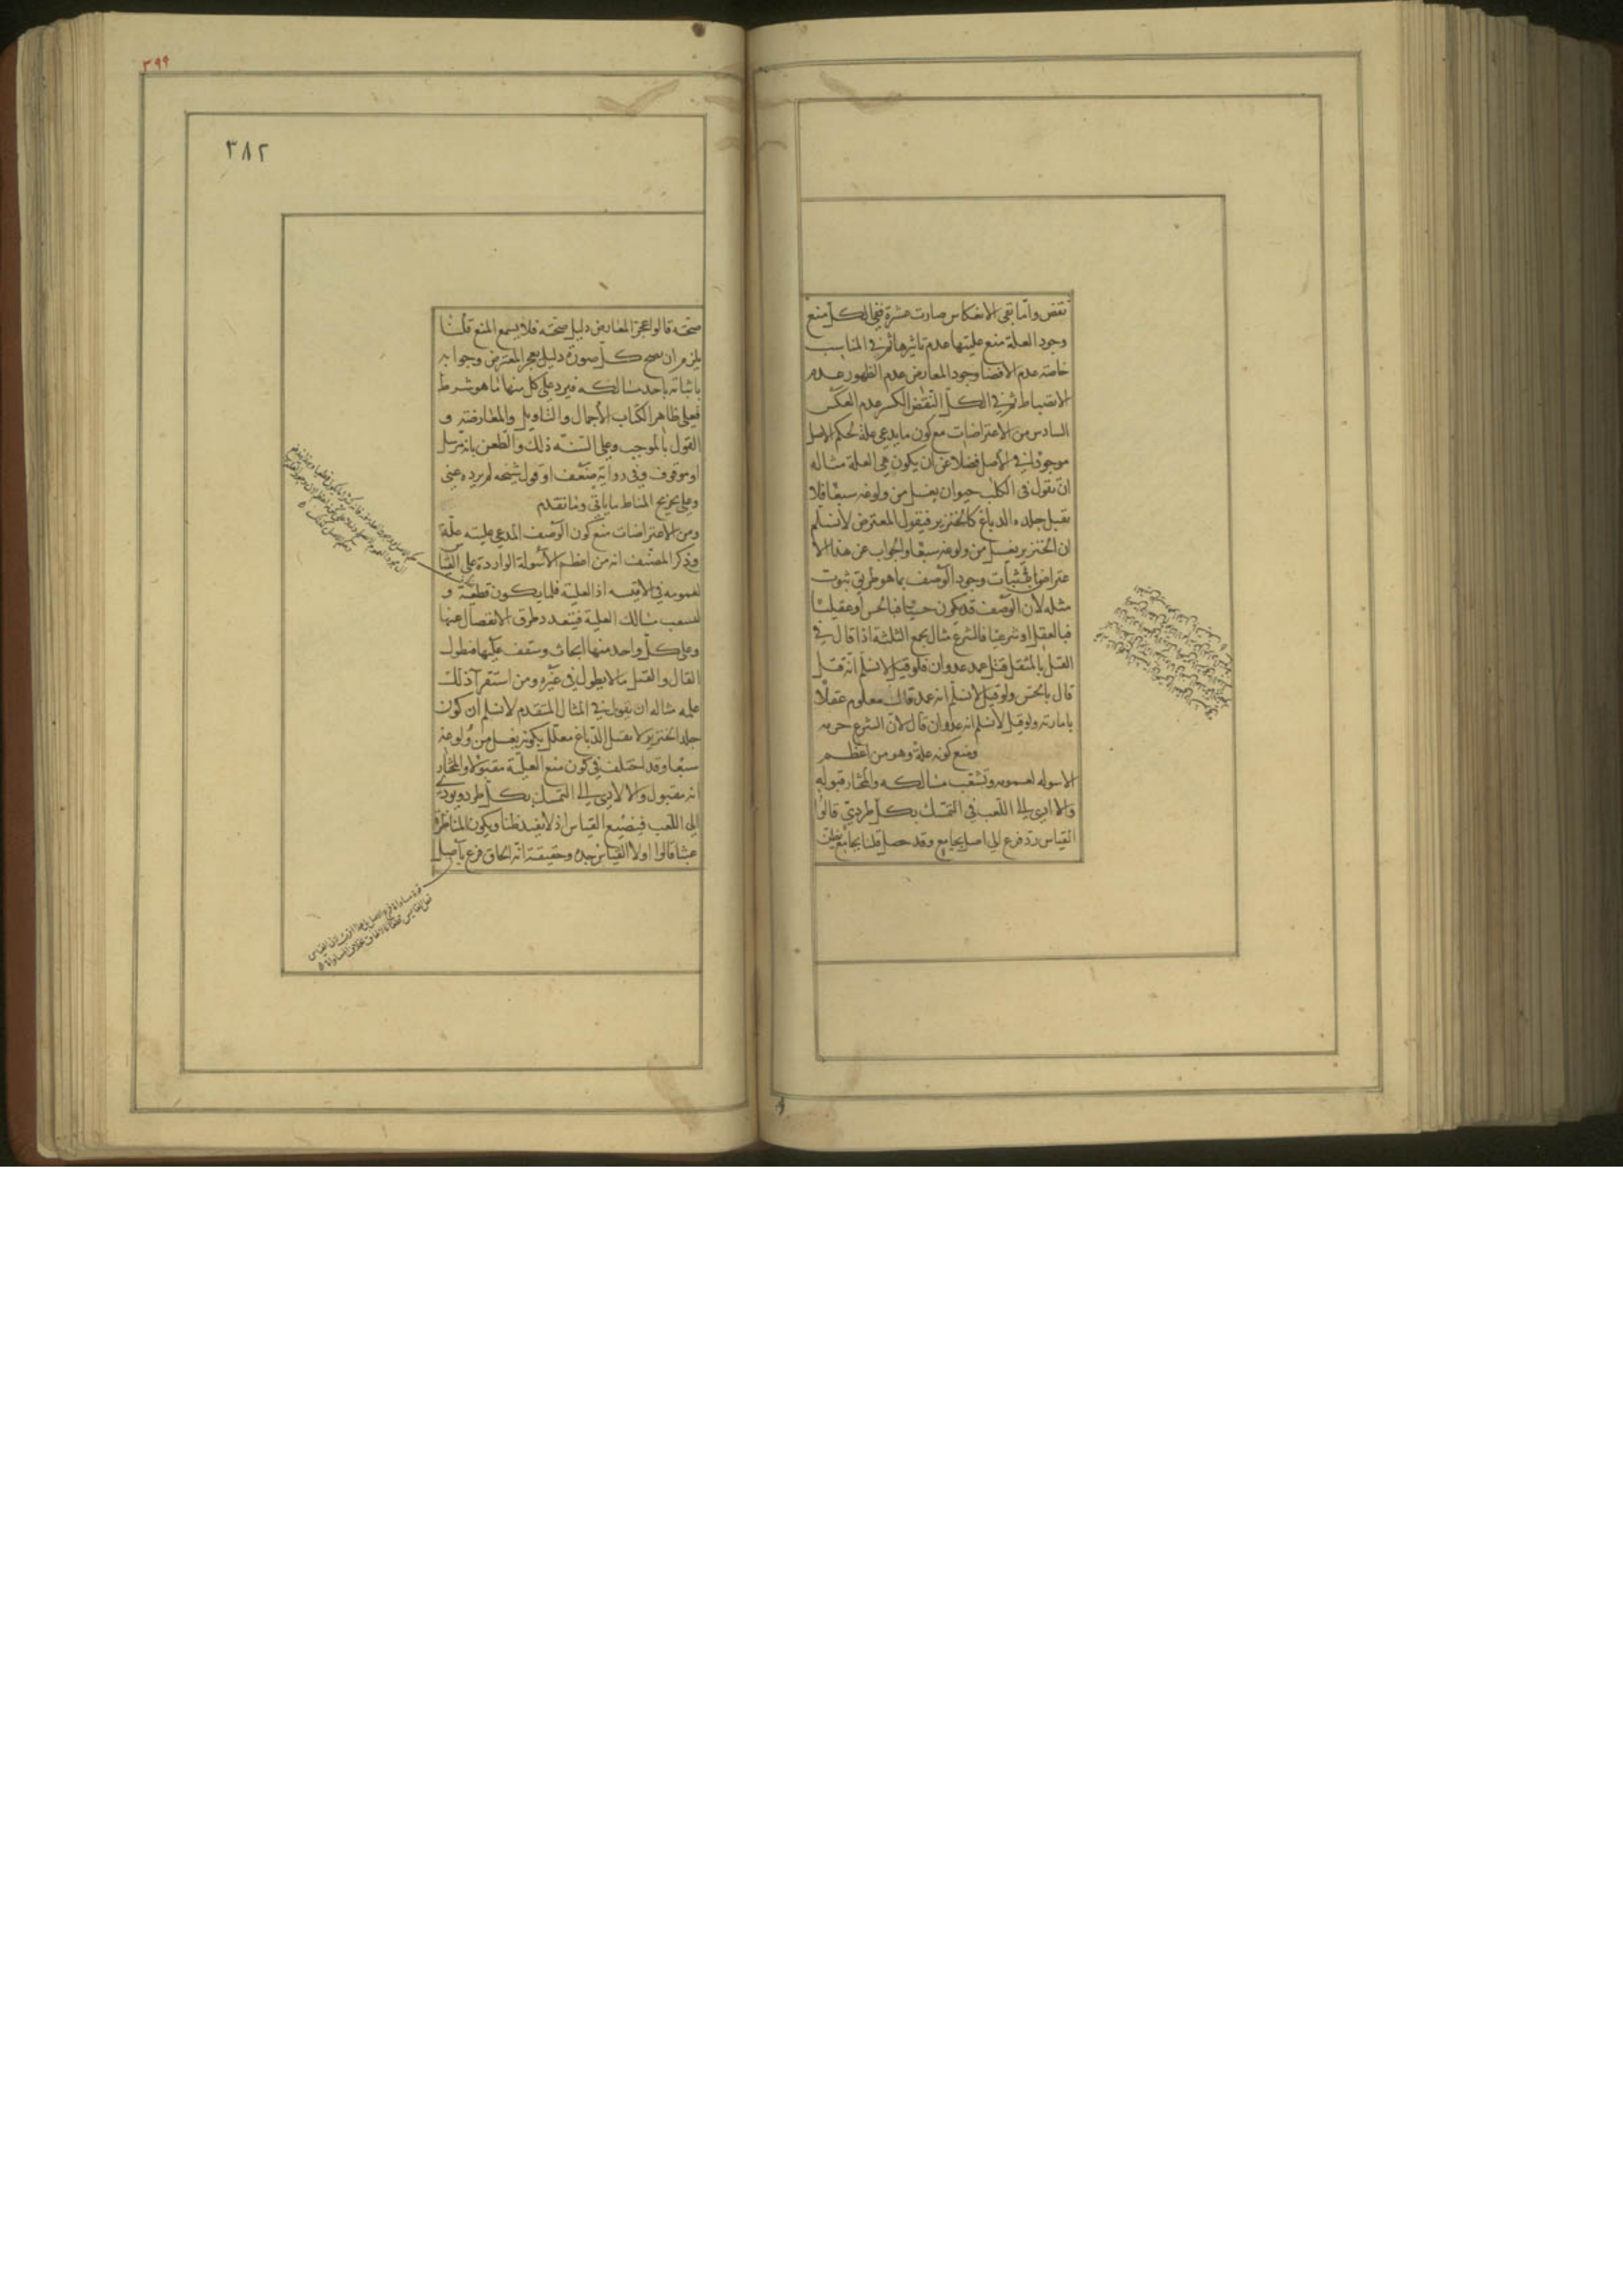 نقض واما بقى الانعكاس صارت عشرة ففي الكل منع
وجود العلة منع عليتها عدم تاثيرها ثم في المناسب
خاصة عدم الافضا وجود المعارض عدم الظهور عدم
الانضباط ثم في الكل النقض الكسر عدم العكس
السادس من الاعتراضات مع كون ما يدعى علة لحكم الاصل
موجودا في الاصل فضلا عن ان يكون هي العلة مثاله
ان تقول في الكلب حيوان يغسل من ولوغه سبعا فلا
يقبل جلده الدباغ كالخنزير فيقول المعترض لا نسلم
ان الخنزير يغسل من ولوغه سبعا والجواب عن هذا الا
عتراض باثبات وجود الوصف بما هو طريق ثبوت
مثله لان الوصف قد يكون حسيا فبالحس او عقليا
فبالعقل او شرعيا فالشرع مثال يجمع الثلثة اذا قال في
القتل بالمثقل قتل عمد عدوان فلو قيل لا نسلم انه قتل
قال بالحس ولو قيل لا نسلم انه عمد قال معلوم عقلا
بامارته ولو قيل لا نسلم انه عدوان قال لان الشرع حرمه
ومنع كونه علة وهو من اعظم
الاسوله لعمومه وتشعب مسالكه والمختار قبوله
والا ادى الى اللعب في التمسك بكل طردي قالوا
القياس رد فرع الى اصل بجامع وقد حصل قلنا بجامع يظن
٣٩٩
٣٨٢
صحته قالوا عجز المعارض دليل صحته فلا يسمع المنع قلنا
يلزم ان يصح كل صورة دليل بعجز المعترض وجوابه
باثباته باحد مسالكه فيرد على كل منها ما هو شرط
فعلى ظاهر الكتاب الاجمال والتاويل والمعارضة و
القول بالموجب وعلى السنه ذلك والطعن بانه مرسل
او موقوف وفي روايته بضعف او قول شيخه لم يروه عني
وعلى تخريج المناط ما ياتي وما تقدم
ومن الاعتراضات منع كون الوصف المدعى عليته علة
وذكر المصنف انه من اعظم الاسولة الواردة على القيا
لعمومه في الاقيسه اذ العلية قلما يكون قطعية و
لتشعب مسالك العلية فيتعدد طرق الانفصال عنها
وعلى كل واحد منها ابحاث وستقف عليها فيطول
القال والقيل ما لا يطول في غيره ومن استقرا ذلك
علمه مثاله ان يقول في المثال المتقدم لا نسلم ان كون
جلد الخنزير لا يقبل الدباغ معلل بكونه يغسل من ولوغه
سبعا وقد اختلف في كون منع العلية مقبولا والمختار
انه مقبول والا لادى الى التمسك بكل طرد ويودي
الى اللعب فيضيع القياس اذ لا يفيد ظنا ويكون المناظرة
عبثا قالوا اولا القياس حده وحقيقته انه الحاق فرع باصل